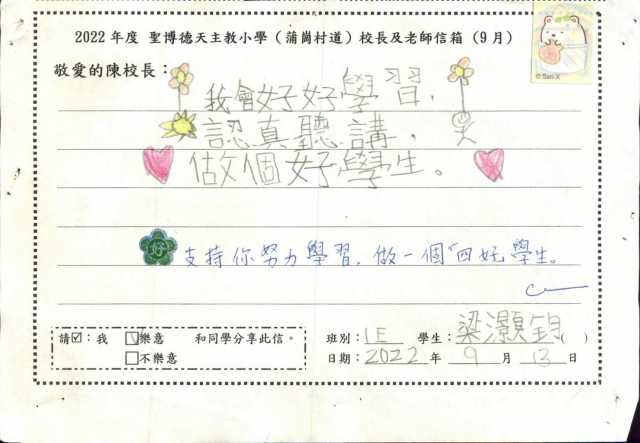 2022 年度 聖博德天主教小學（蒲崗村道）校長及老師信箱（9 月）
© San-X
敬愛的陳校長：
我會好好學習，
認真聽講，
做個好學生。
好 支持你努力學習，做一個「四好」學生。
請☑：我 ☑樂意 和同學分享此信。
□不樂意
班別：1E 學生：梁灝鈞（ ）
日期：2022 年 9 月 13 日